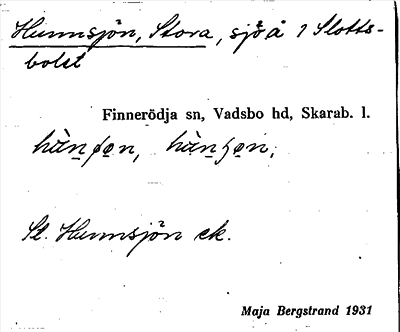 Hunnsjön, Stora, sjö å 1 Slotts-
bolet
Finnerödja sn, Vadsbo hd, Skarab. l.
St. Hunnsjön ek.
Maja Bergstrand 1931